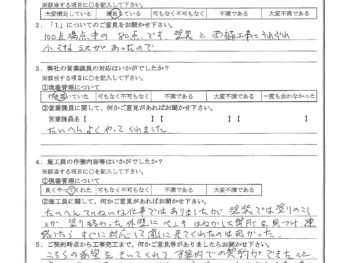 ※該当する項目に○を記入して下さい。
大変満足している 満足している 可もなく不可もなく 不満である 大変不満である
2．「1」についてのご意見をお聞かせ下さい。
100点満点中の 80点です。塗装と 雨樋工事にそれぞれ
小さなミスがあったので
3．弊社の営業課員の対応はいかがでしたか？
※該当する項目に○を記入して下さい。
①現場管理について
行き届いていた 可もなく不可もなく 不満である 大変不満である 一度も会わなかった
②営業課員に関して、何かご意見があればお聞かせ下さい。
営業課員名【 】【 】【 】
たいへんよくやってくれました。
4．施工員の作業内容等はいかがでしたか？
※該当する項目に○を記入して下さい。
①現場管理について
良くやってくれた 可もなく不可もなく 不満である 大変不満である
②施工員に関して、何かご意見があればお聞かせ下さい。
たいへんていねいな仕事ではありましたが 塗装では塗りのこし
とかが 塗り終わった外壁にペンキはねかした箇所を見つけ 連
絡したらすぐに対応して直しに来てくれたのは良かった。
5．ご契約時点から工事完工まで、何かご意見等がありましたらお聞かせ下さい。
こちらの希望をきいてくれて 予算内での契約ができたこと